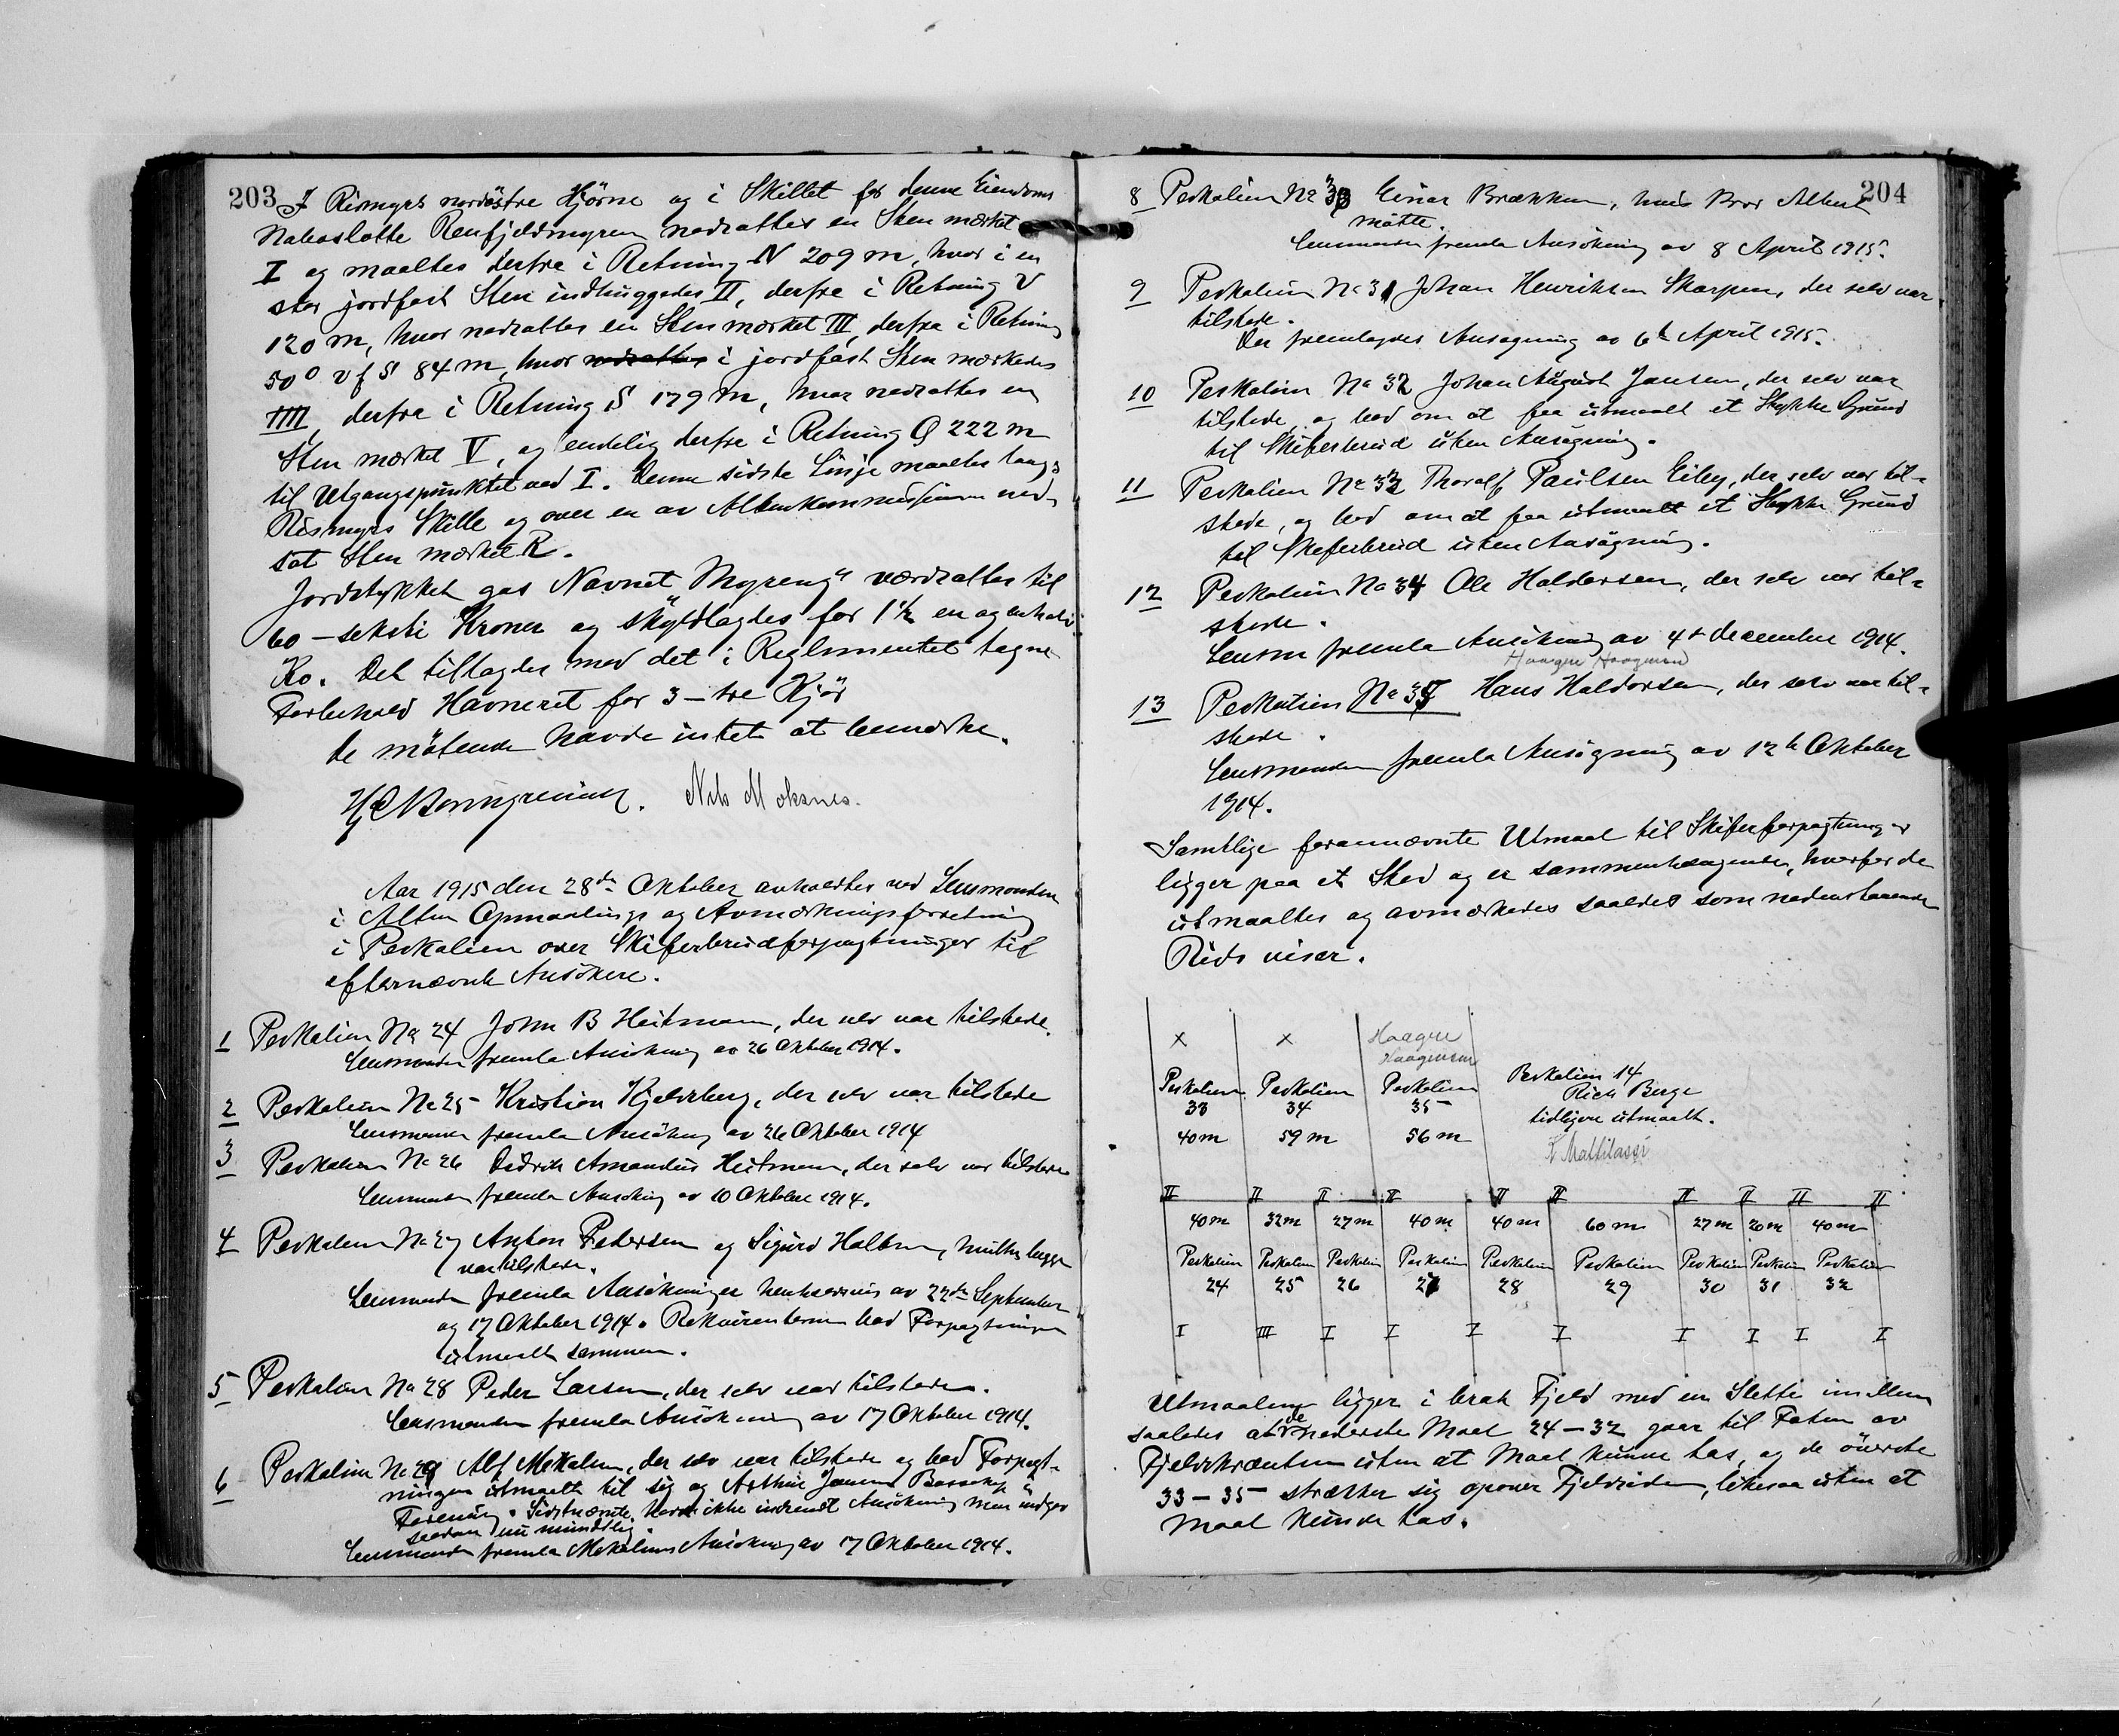 203
I Rismyrs nordöstre Hjörne og i Skillet for denne Eiendoms
Naboslotte Renfjeldmyren nedsattes en Sten mærket
I og maaltes derfra i Retning N 209 m, hvor i en
stor jordfast Sten indhuggedes II, derfra i Retning V
120 m, hvor nedsattes en Sten mærket III, derfra i Retning
50° V f S 84 m, hvor nedsattes i jordfast Sten mærkedes
IIII, derfra i Retning S 179 m, hvor nedsattes en
Sten mærket V, og endelig derfra i Retning Ø 222 m
til Utgangspunktet ved I. Denne sidste Linje maaltes langs
Rismyrs Skille og over en av Altenkommissionen ned-
sat Sten mærket R.
Jordstykket gas Navnet "Myreng" værdsattes til
60 - seksti Kroner og skyldlagdes for 1½ en og en halv
Ko. Det tillagdes med det i Reglementet tagne
Forbehold Havneret for 3 - tre Kjör
De mötende havde intet at bemærke.
Nils Moksnes.
Aar 1915 den 28de Oktober avholdtes ved Lensmanden
i Alten Opmaalings og Avmærkningsforretning
i Peskalien over Skiferbrudforpagtninger til
efternævnte Ansökere.
1 Peskalien No 24 John B Heitmann, der selv var tilstede.
Lensmanden fremla Ansökning av 26 Oktober 1914.
2 Peskalien No 25 Kristian Kjeldsberg, der selv var tilstede
Lensmannen fremla Ansökning av 26 Oktober 1914
3 Peskalien No 26 Didrik Amandus Heitmann, der selv var tilstede
Lensmanden fremla Ansökning av 10 Oktober 1914.
4 Peskalien No 27 Anton Pedersen og Sigurd Halten, hvilke begge
var tilstede.
Lensmanden fremla Ansökninger henholdsvis av 22de September
og 17 Oktober 1914. Rekvirenterne bad Forpagtningen
utmaalt sammen.
5 Peskalien No 28 Peder Larsen, der selv var tilstede.
Lensmanden fremla Ansökning av 17 Oktober 1914.
6 Peskalien No 29 Alf Mikalsen, der selv var tilstede og bad Forpagt-
ningen utmaalt til sig og Arthur Jensen Bossekop i
Forening. Sidstnævnte havde ikke indsendt Ansökning men indgav
saadan nu mundtlig.
Lensmanden fremla Mikalsens Ansökning av 17 Oktober 1914.
204
8 Peskalien No 30 Einar Brækken, hvis Bror Albert
mötte.
Lensmanden fremla Ansökning av 8 April 1915.
9 Peskalien No 31 Johan Henriksen Skarpenes, der selv var
tilstede.
Der fremlagdes Ansøgning av 6te April 1915.
10 Peskalien No 32 Johan August Jansen, der selv var
tilstede, og bad om at faa utmaalt et Stykke Grund
til Skiferbrud uten Ansøgning.
11 Peskalien No 33 Thoralf Paulsen Eiby, der selv var til-
stede, og bad om at faa utmaalt et Stykke Grund
til Skiferbrud uten Ansøgning.
12 Peskalien No 34 Ole Haldorsen, der selv var til-
stede.
Lensm fremla Ansökning av 4de december 1914.
Haagen Haagensen
13 Peskalien No 35 Hans Haldorsen, der selv var til-
stede.
Lensmanden fremla Ansögning av 12te Oktober
1914.
Samtlige forannævnte Utmaal til Skiferforpagtninger
ligger paa et Sted og er sammenhængende, hvorfor de
utmaaltes og avmærkedes saaledes som nedenstaaende
Rids viser.
x x Haagen
Haagensen
Peskalien Peskalien Peskalien
33 34 35
40m 59m 56m
Peskalien 14
Rich Berge
tidligere utmaalt.
II II II II II II II II II II
40m 32m 27m 40m 40m 60m 27m 20m 40m
Peskalien Peskalien Peskalien Peskalien Peskalien Peskalien Peskalien Peskalien Peskalien
24 25 26 27 28 29 30 31 32
I III I I I I I I I I
Utmaalene ligger i brat Fjeld med en Slette imellem
saaledes at de nederste Maal 24-32 gaar til Foten av
Fjeldskrænten uten at Maal kunne tas, og de överste
33-35 strækker sig opover Fjeldsiden, likesaa uten at
Maal kunde tas.